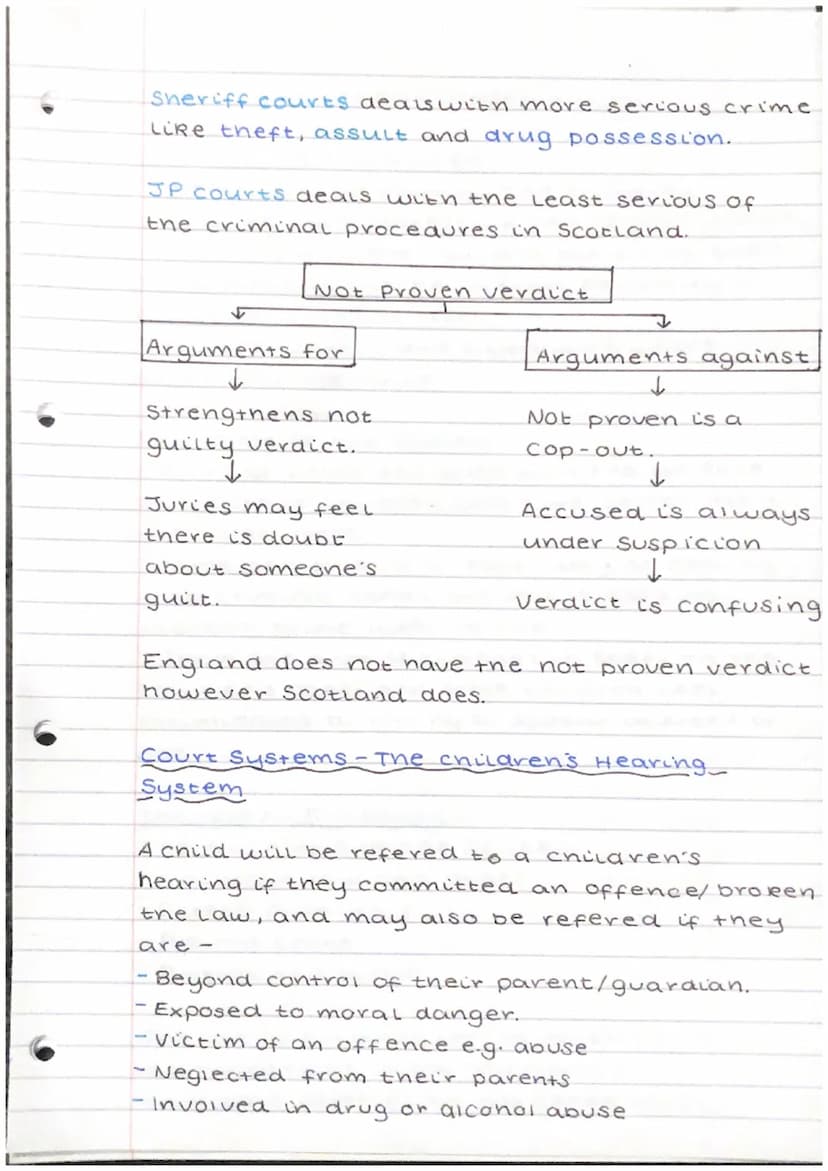 Sheriff courts deals with more serious crime
like theft, assult and drug possession.
JP courts deals with the least serious of
the criminal procedures in Scotland.
Not proven verdict
Arguments for
Arguments against
Strengthens not
guilty verdict.
Juries may feel
there is doubt
about someone's
guilt.
Not proven is a
cop-out.
Accused is always
under suspicion
Verdict is confusing
England does not have the not proven verdict
however Scotland does.
Court Systems - The children's Hearing
System
A child will be refered to a children's
hearing if they committed an offence/broken
the law, and may also be refered if they
are -
- Beyond control of their parent/guardian.
- Exposed to moral danger.
- Victim of an offence e.g. abuse
- Neglected from their parents
- Involved in drug or alcohol abuse